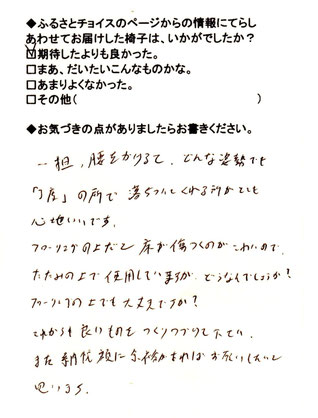 ◆ふるさとチョイスのページからの情報にてらし
あわせてお届けした椅子は、いかがでしたか?
☑期待したよりも良かった。
□まあ、だいたいこんなものかな。
□あまりよくなかった。
□その他( )
◆お気づきの点がありましたらお書きください。
一担、腰をかけると、どんな姿勢でも
の所で 落ちついてくれる所がとても
心地いいです。
フローリングの上だと 床が傷つくのが こわいので、
たたみの上で 使用していますが、どうなんでしょうか?
フローリングの上でも 大丈夫ですか?
これからも 良いものを つくりつづけて下さい。
また 納税額に 余裕があれば お願いしたいと
思います。